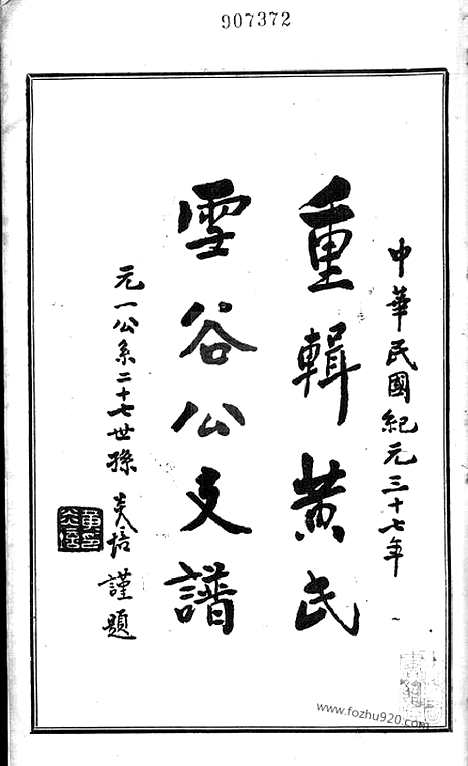 907372
中華民國紀元三十七年
重輯黃氏
雪谷公支譜
元一公系二十七世孫 炎培謹題
www.fozhu920.com